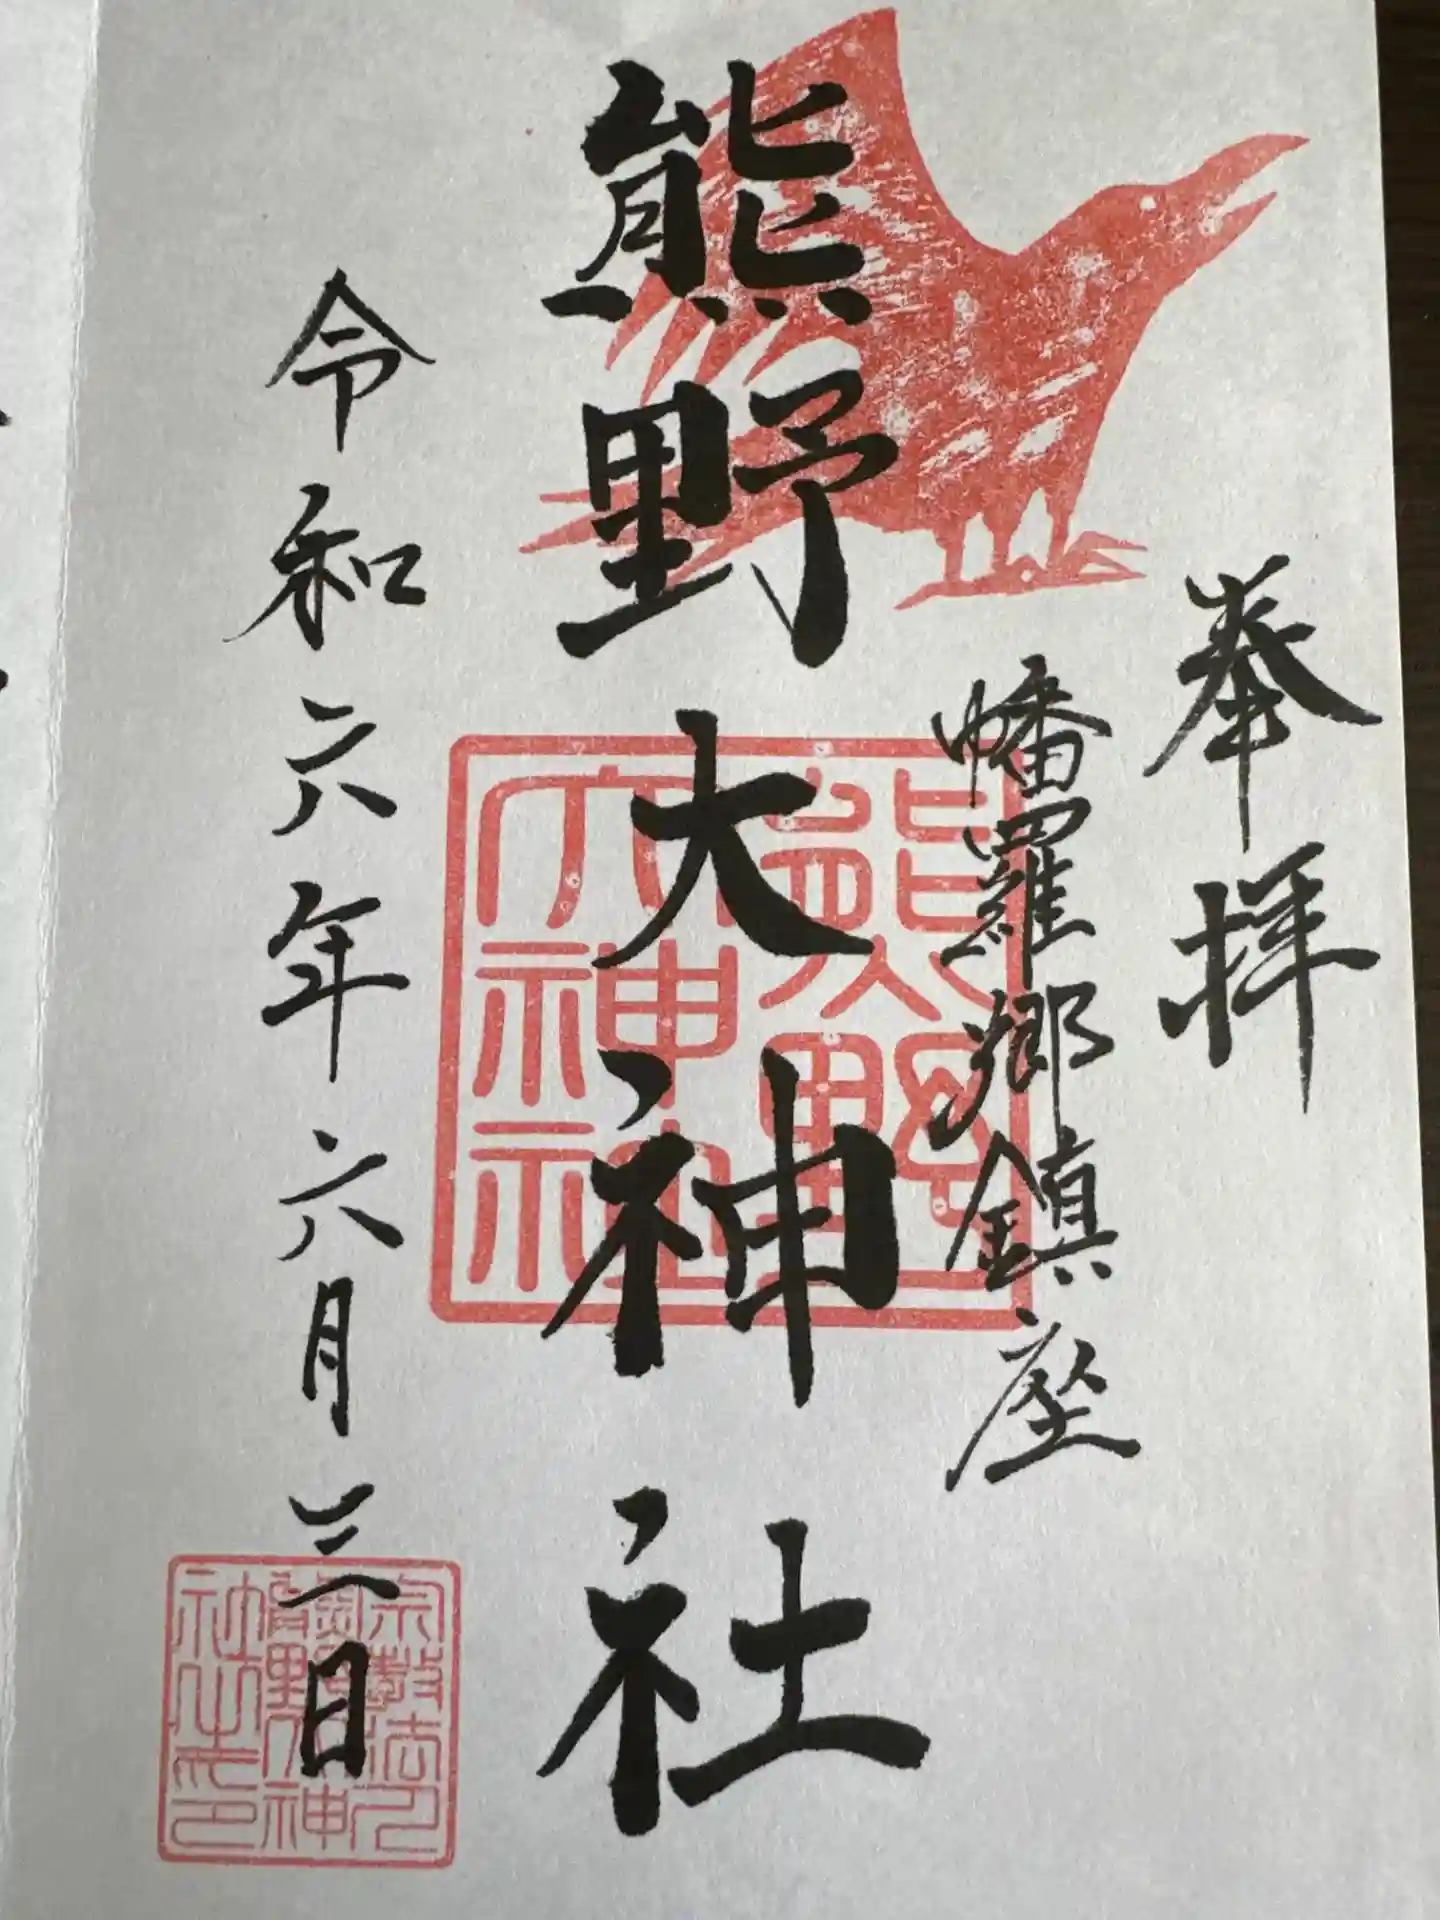 奉拝
幡羅郷鎮座
熊野大神社
熊野
大神社
令和六年六月三日
宗教法人
熊野大神
社之印